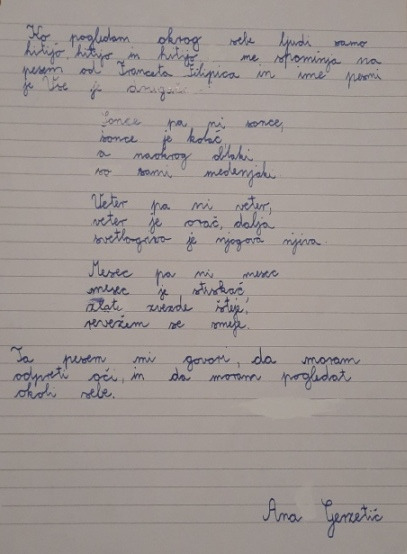 Ko pogledam okrog sebe ljudi samo
hitijo, hitijo in hitijo me spominja na
pesem od Franceta Filipiča in ime pesmi
je Vse je
Sonce pa ni sonce,
sonce je kolač
a naokrog oblaki
so sami medenjaki.
Veter pa ni veter,
veter je orač, dalja
svetlogriva je njegova njiva.
Mesec pa ni mesec
mesec je stiskač,
zlate zvezde šteje,
se smeje.
Ta pesem mi govori, da moram
odpreti oči, in da moram pogledat
okoli sebe.
Ana